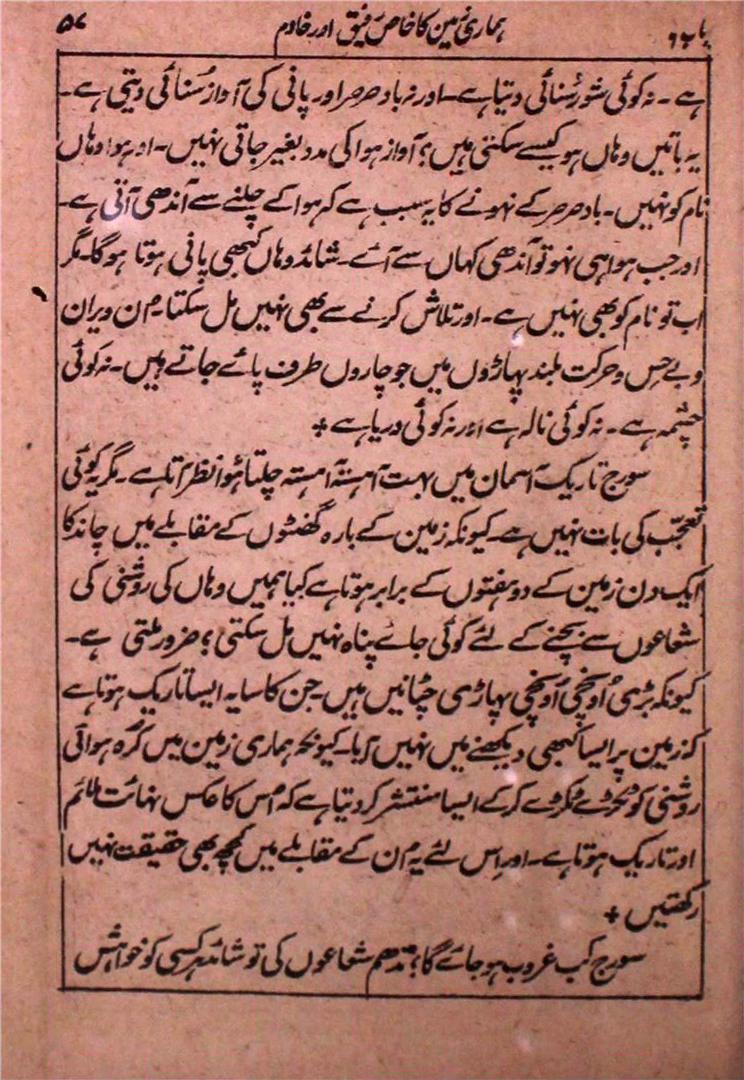 باب ۶ ہماری زمین کا خاص رفیق اور خادم ۵۷
ہے ۔ نہ کوئی شور سُنائی دیتا ہے ۔ اور نہ باد صرصر اور پانی کی آواز سُنائی دیتی ہے ۔
یہ باتیں وہاں ہو کیسے سکتی ہیں ؟ آواز ہوا کی مدد بغیر جاتی نہیں ۔ اور ہوا وہاں
نام کو نہیں ۔ باد صرصر کے نہونے کا یہ سبب ہے کہ ہوا کے چلنے سے آندھی آتی ہے ۔
اور جب ہوا ہی نہو تو آندھی کہاں سے آئے ۔ شائد وہاں کبھی پانی ہوتا ہو گا ۔ مگر
اب تو نام کو بھی نہیں ہے ۔ اور تلاش کرنے سے بھی نہیں مل سکتا ۔ اُن ویران
و بے حِس و حرکت بلند پہاڑوں میں جو چاروں طرف پائے جاتے ہیں ۔ نہ کوئی
چشمہ ہے ۔ نہ کوئی نالہ ہے اور نہ کوئی دریا ہے +
سورج تاریک آسمان میں بہت آہستہ آہستہ چلتا ہُوا نظر آتا ہے ۔ مگر یہ کوئی
تعجّب کی بات نہیں ہے ۔ کیونکہ زمین کے بارہ گھنٹوں کے مقابلے میں چاند کا
ایک دن زمین کے دو ہفتوں کے برابر ہوتا ہے کیا ہمیں وہاں کی روشنی کی
شعاعوں سے بچنے کے لئے کوئی جائے پناہ نہیں مل سکتی ؟ ضرور ملتی ہے ۔
کیونکہ بڑی اُونچی اُونچی پہاڑی چٹانیں ہیں ۔ جن کا سایہ ایسا تاریک ہوتا ہے
کہ زمین پر ایسا کبھی دیکھنے میں نہیں آیا ۔ کیونکہ ہماری زمین میں کُرہ ہوائی
روشنی کو ٹکڑے ٹکڑے کر کے ایسا منتشر کر دیتا ہے کہ اُس کا عکس نہائت ملائم
اور تاریک ہوتا ہے ۔ اور اِس لئے یہ اُن کے مقابلے میں کچھ بھی حقیقت نہیں
رکھتیں +
سورج کب غروب ہو جائے گا ؟ مدھم شعاعوں کی تو شائد ہر کسی کو خواہش